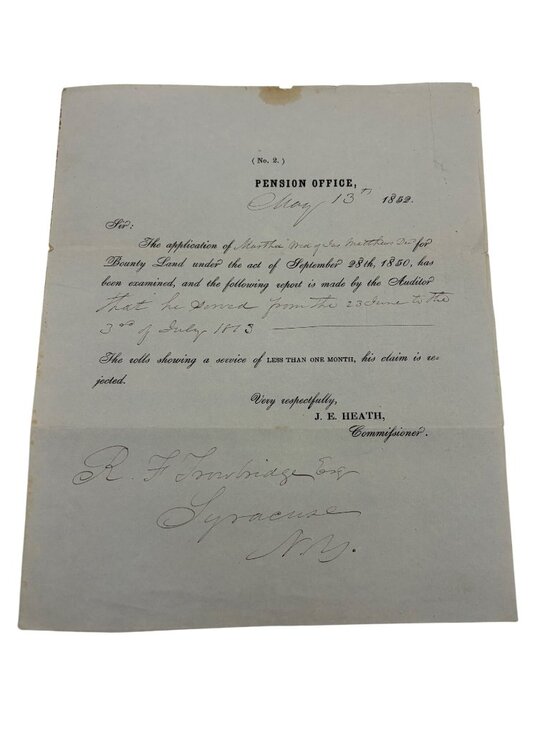 ( No. 2. )
PENSION OFFICE,
May 13th 1852.
Sir:
The application of Martha Wid of Jas Matthews Decd for
Bounty Land under the act of September 28th, 1850, has
been examined, and the following report is made by the Auditor
that he served from the 23 June to the
3rd of July 1813
The rolls showing a service of LESS THAN ONE MONTH, his claim is re-
jected.
Very respectfully,
J. E. HEATH,
Commissioner.
R. F Trowbridge Esq
Syracuse
N.Y.